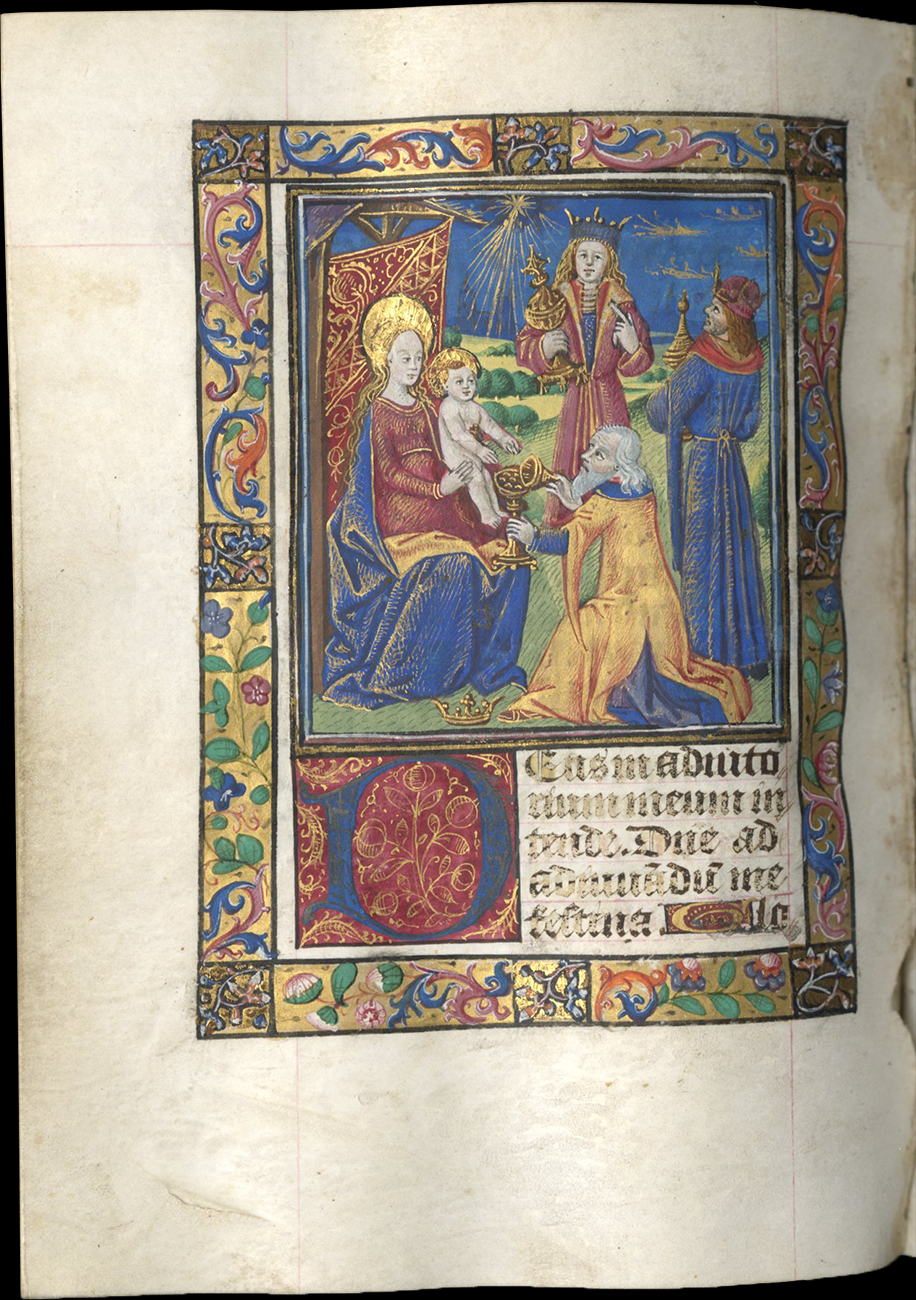 Deus in adiuto
rium meum in
tende. Dne ad
adiuuādū me
festina. Gla